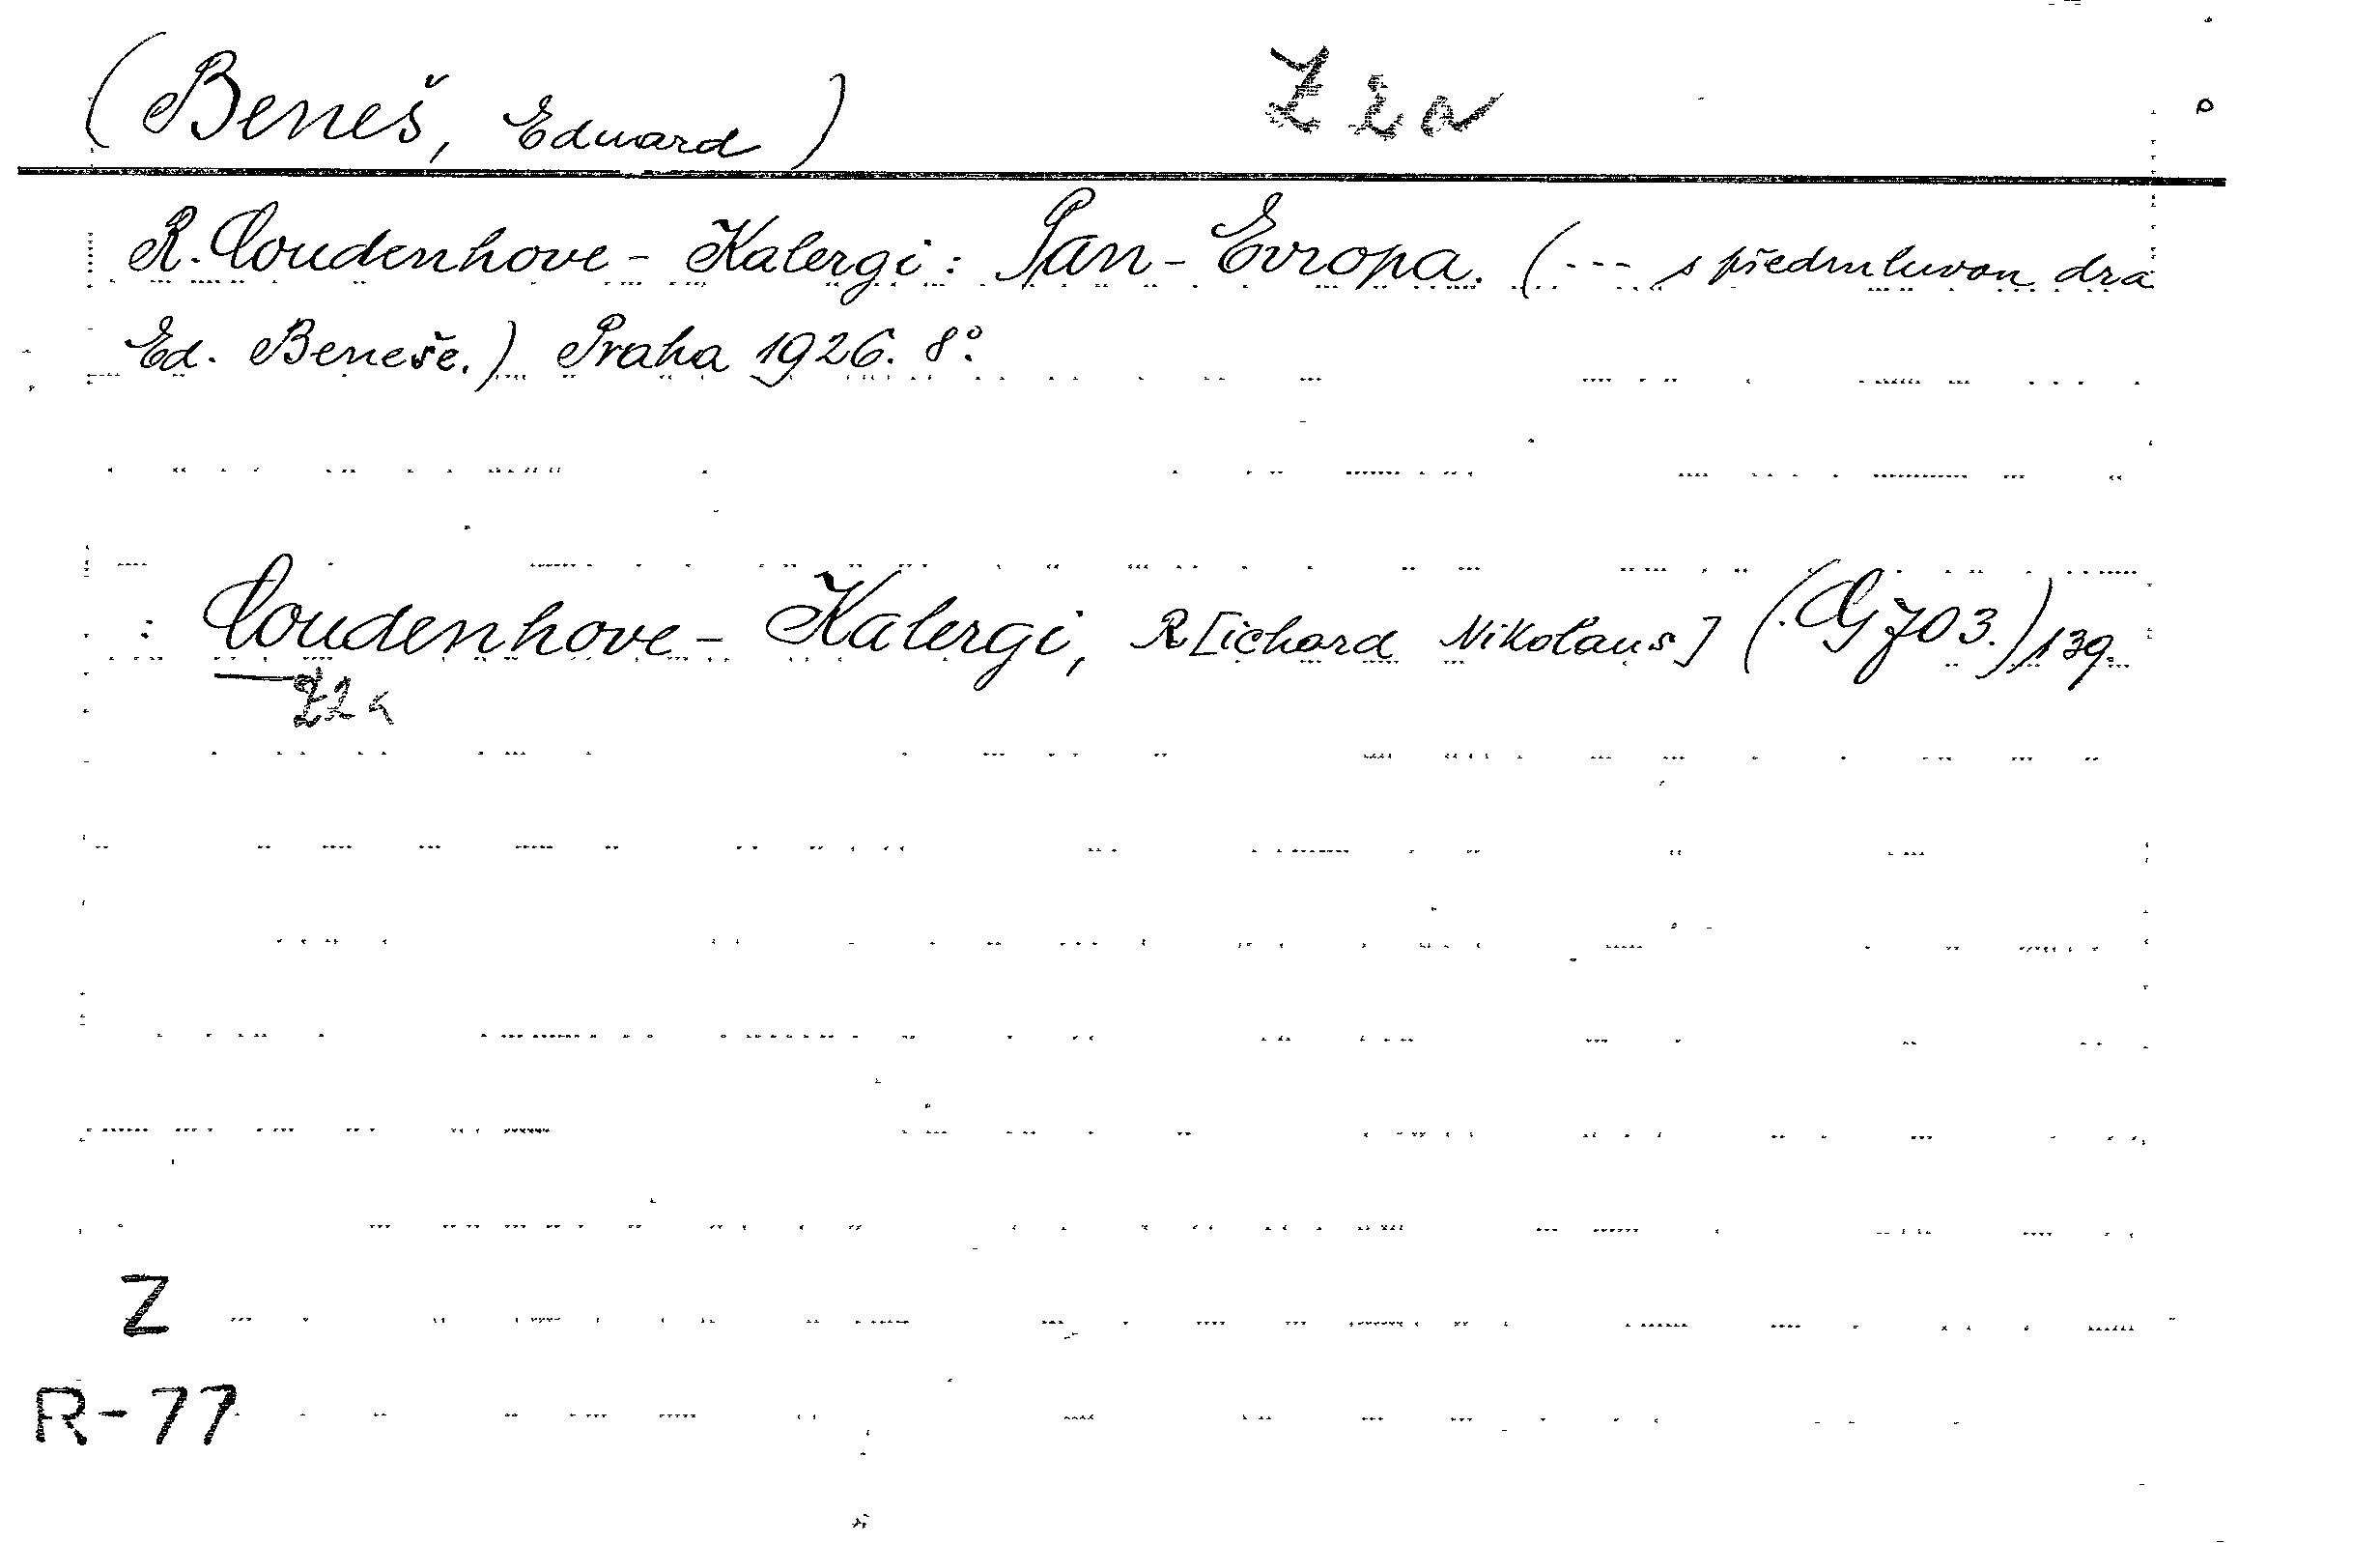 (Beneš, Eduard)
R. Coudenhove - Kalergi: Pan - Evropa. (--- s předmluvou dra
Ed. Beneše.) Praha 1926. 8°.
: Coudenhove - Kalergi, R[ichard Nikolaus] (G 703.) 139.
Z
R-77